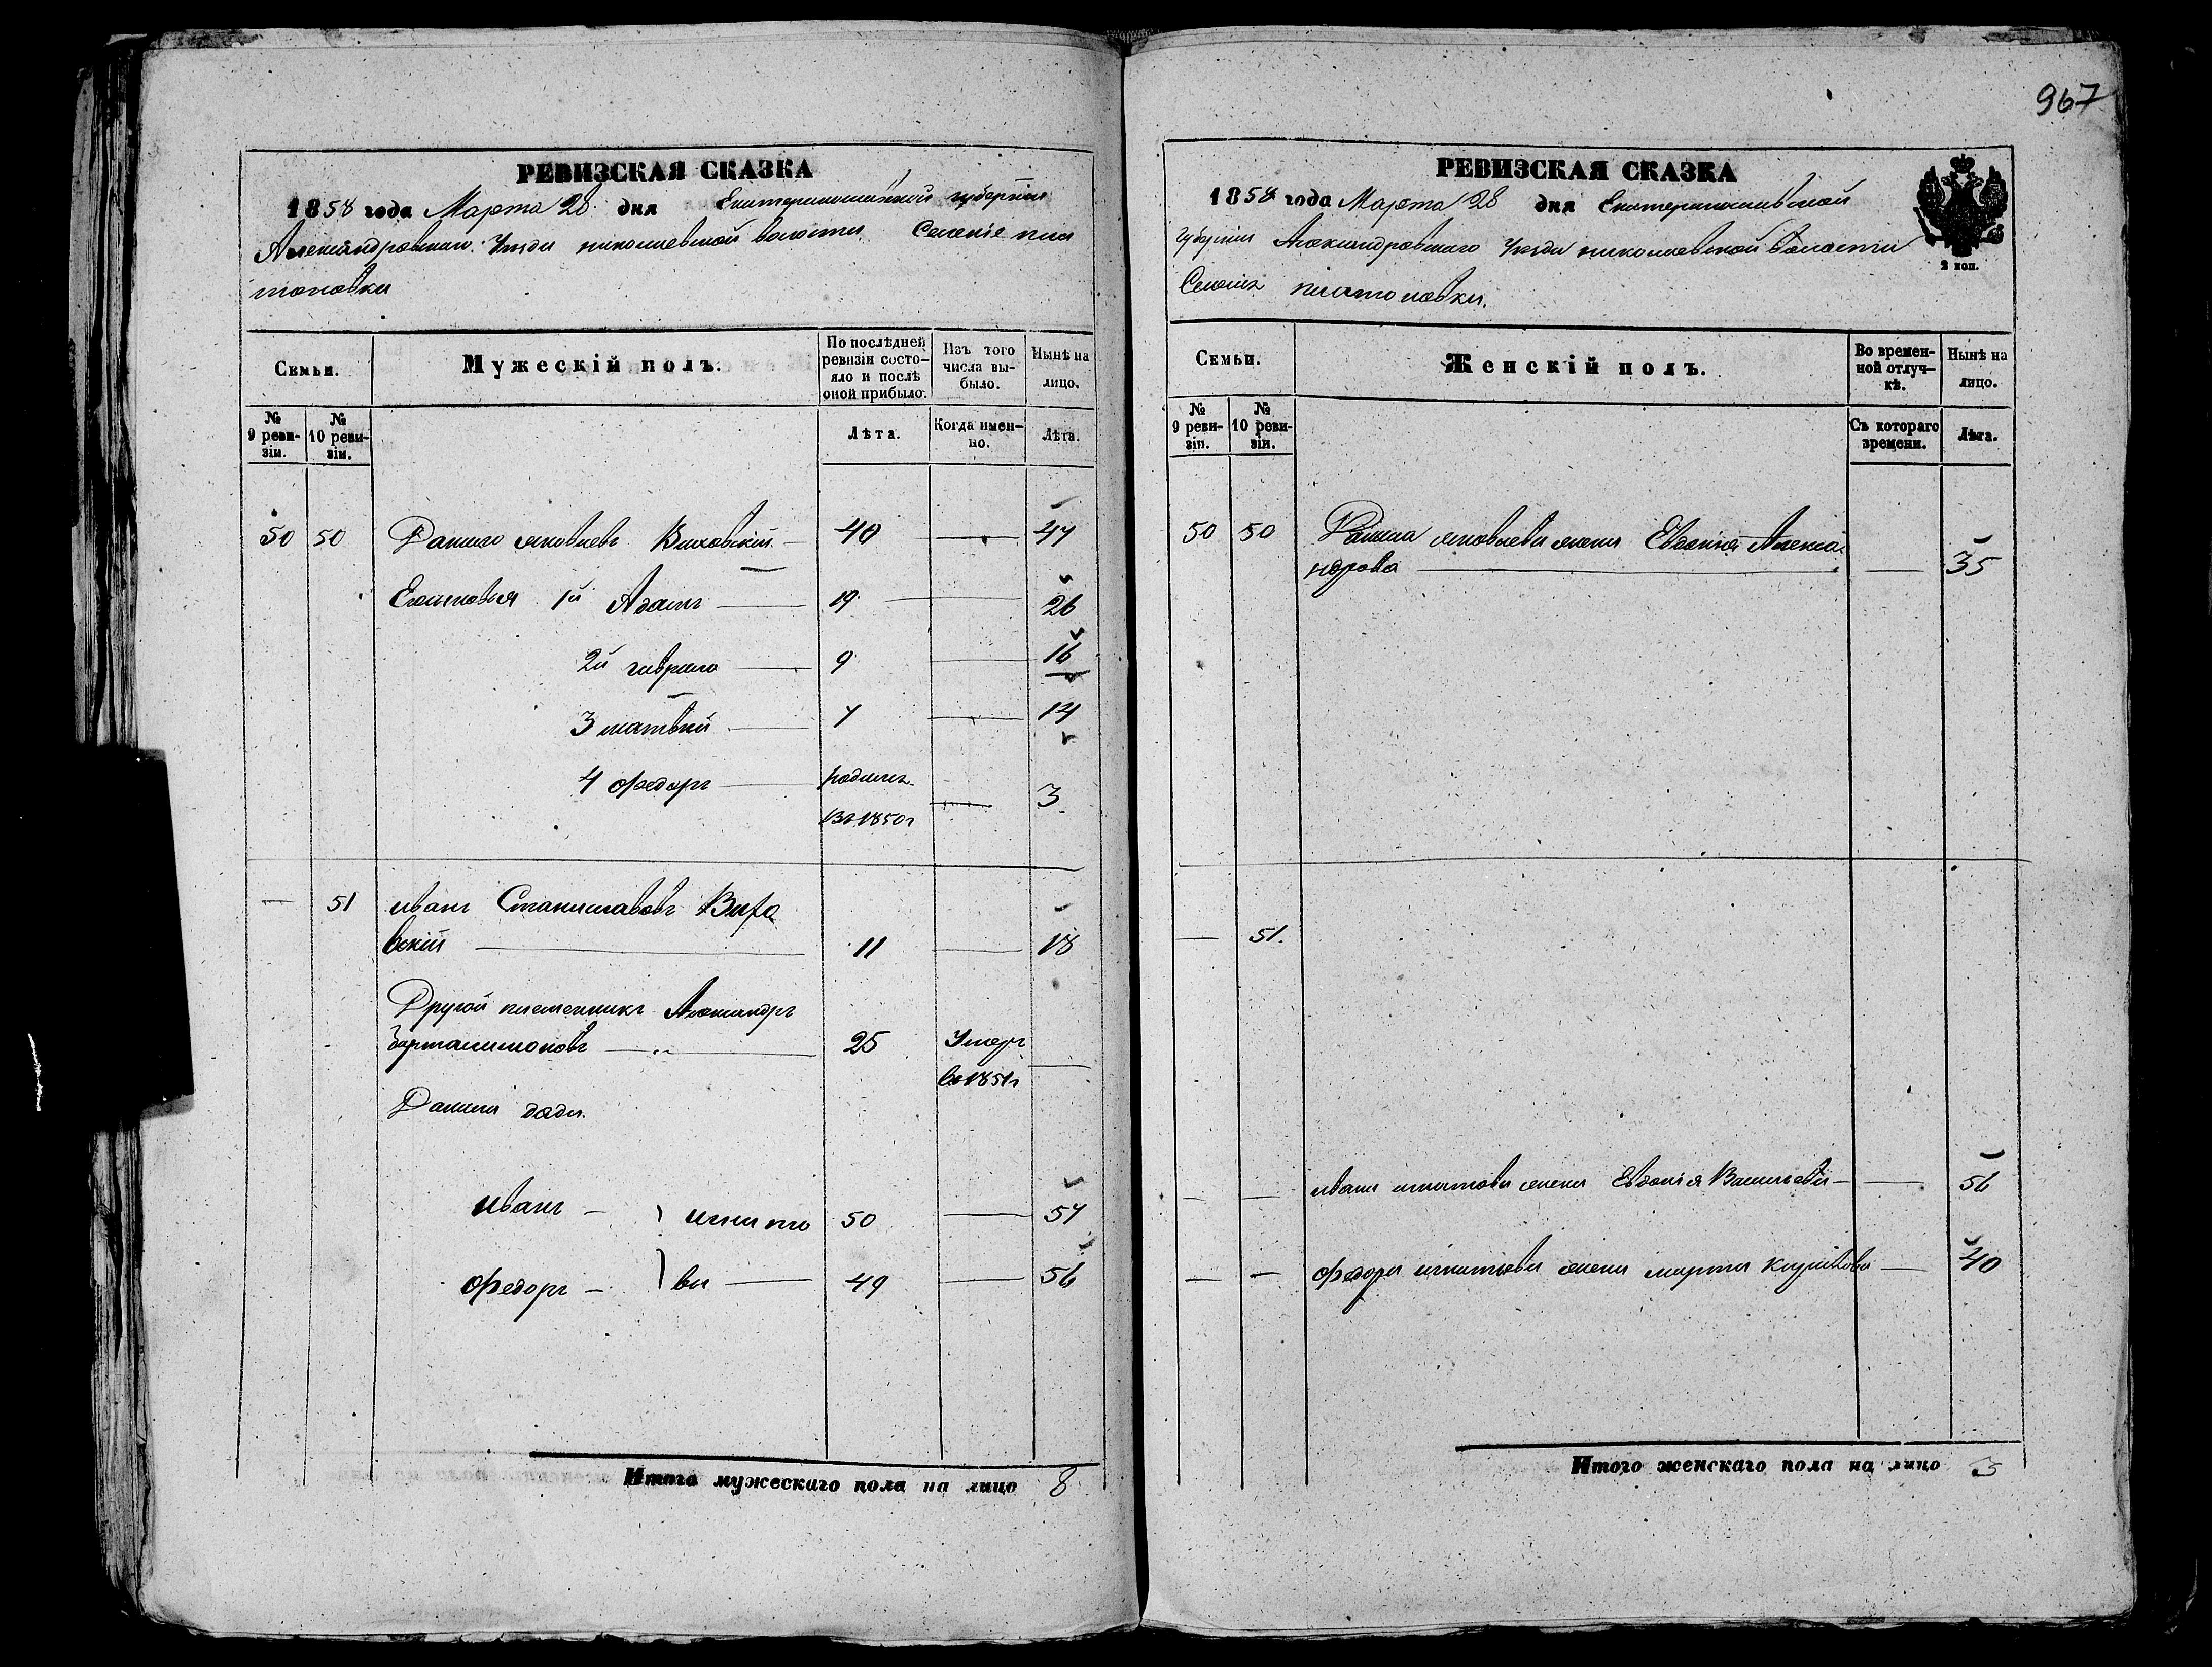 967
РЕВИЗСКАЯ СКАЗКА
1858 года Марта 28 дня Екатеринославской губернiи
Александровского Уезда николаевской волости Селенiе пла
тоновки
Семьи.
Мужескiй полъ.
По послѣдней ревизiи состо-
яло и послѣ оной прибыло.
Изъ того числа вы-
было.
Нынѣ на лицо.
№ 9 реви-
зiи.
№ 10 реви-
зiи.
Лѣта.
Когда имен-
но.
Лѣта.
50 50 Данило яковлевъ Виховскiй — 40 — 47
Его сыновья 1й Адамъ — 19 — 26
2й гаврило — 9 — 16
3 матвѣй — 7 — 14
4 федоръ — родился
въ 1850г — 3
— 51 иванъ Станиславовъ Вихо
вскiй — 11 — 18
Другой племенникъ Александръ
— 25 Умеръ
въ 1851г —
Данила дяди.
иванъ — } игнато 50 — 57
федоръ — } вы — 49 — 56
Итого мужескаго пола на лицо 8
РЕВИЗСКАЯ СКАЗКА
1858 года Марта 28 дня Екатеринославской
губернiи Александровского Уезда николаевской волости
Селенiя платоновки.
2 коп.
Семьи.
Женскiй полъ.
Во времен-
ной отлуч-
кѣ.
Нынѣ на лицо.
№ 9 реви-
зiи.
№ 10 реви-
зiи.
Съ котораго времени.
Лѣта.
50 50 Данила яковлева жена Евдокiя Алекса
ндрова — — 35
— 51.
— — ивана игнатова жена Евдокiя Васильева — — 56
— — федора игнатьева жена марта — 40
Итого женскаго пола на лицо 3